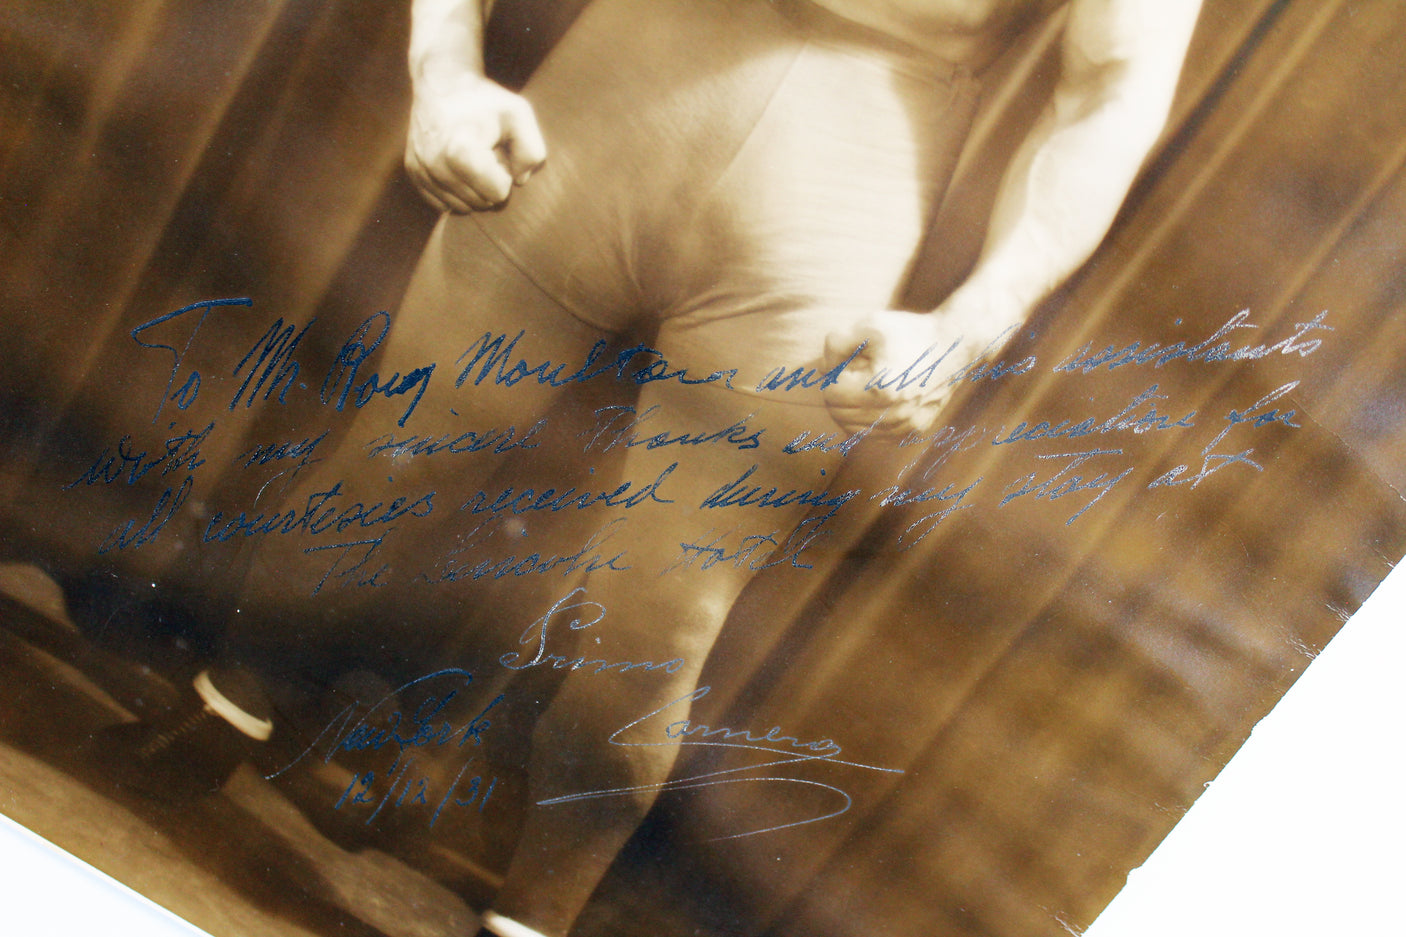 To Mr. Roy Moulton and all his assistants
with my sincere Thanks and appreciation for
all courtesies received during my stay at
The Lincoln Hotel
Primo
Carnera
New York
12/12/31